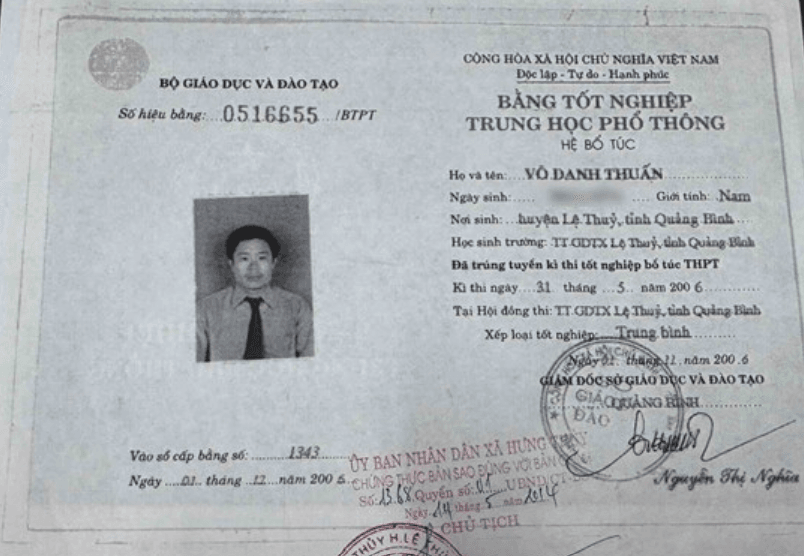 BỘ GIÁO DỤC VÀ ĐÀO TẠO
Số hiệu bằng:....0516655..../BTPT
CỘNG HÒA XÃ HỘI CHỦ NGHĨA VIỆT NAM
Độc lập - Tự do - Hạnh phúc
BẰNG TỐT NGHIỆP
TRUNG HỌC PHỔ THÔNG
HỆ BỔ TÚC
Họ và tên:....VÕ DANH THUẤN....
Ngày sinh:..... ..... Giới tính: .Nam
Nơi sinh:...huyện Lệ Thuỷ, tỉnh Quảng Bình....
Học sinh trường: TT GDTX Lệ Thuỷ, tỉnh Quảng Bình
Đã trúng tuyển kì thi tốt nghiệp bổ túc THPT
Kì thi ngày....31 tháng ...5.. năm 2006..
Tại Hội đồng thi: TT GDTX Lệ Thuỷ, tỉnh Quảng Bình
Xếp loại tốt nghiệp:...Trung bình..........
Ngày 01. tháng 11..năm 2006
GIÁM ĐỐC SỞ GIÁO DỤC VÀ ĐÀO TẠO
QUẢNG BÌNH
GIÁO
ĐÀO
Nguyễn Thị Nghĩa
Vào sổ cấp bằng số: .......1343.......
Ngày .....01.. tháng ..12...năm 2006
ỦY BAN NHÂN DÂN XÃ HƯNG
CHỨNG THỰC BẢN SAO ĐÚNG VỚI BẢN
Số: 1368 Quyển số: 01 UBND/CT
Ngày 14 tháng 5 năm 2014
CHỦ TỊCH
THỦY H.LỆ